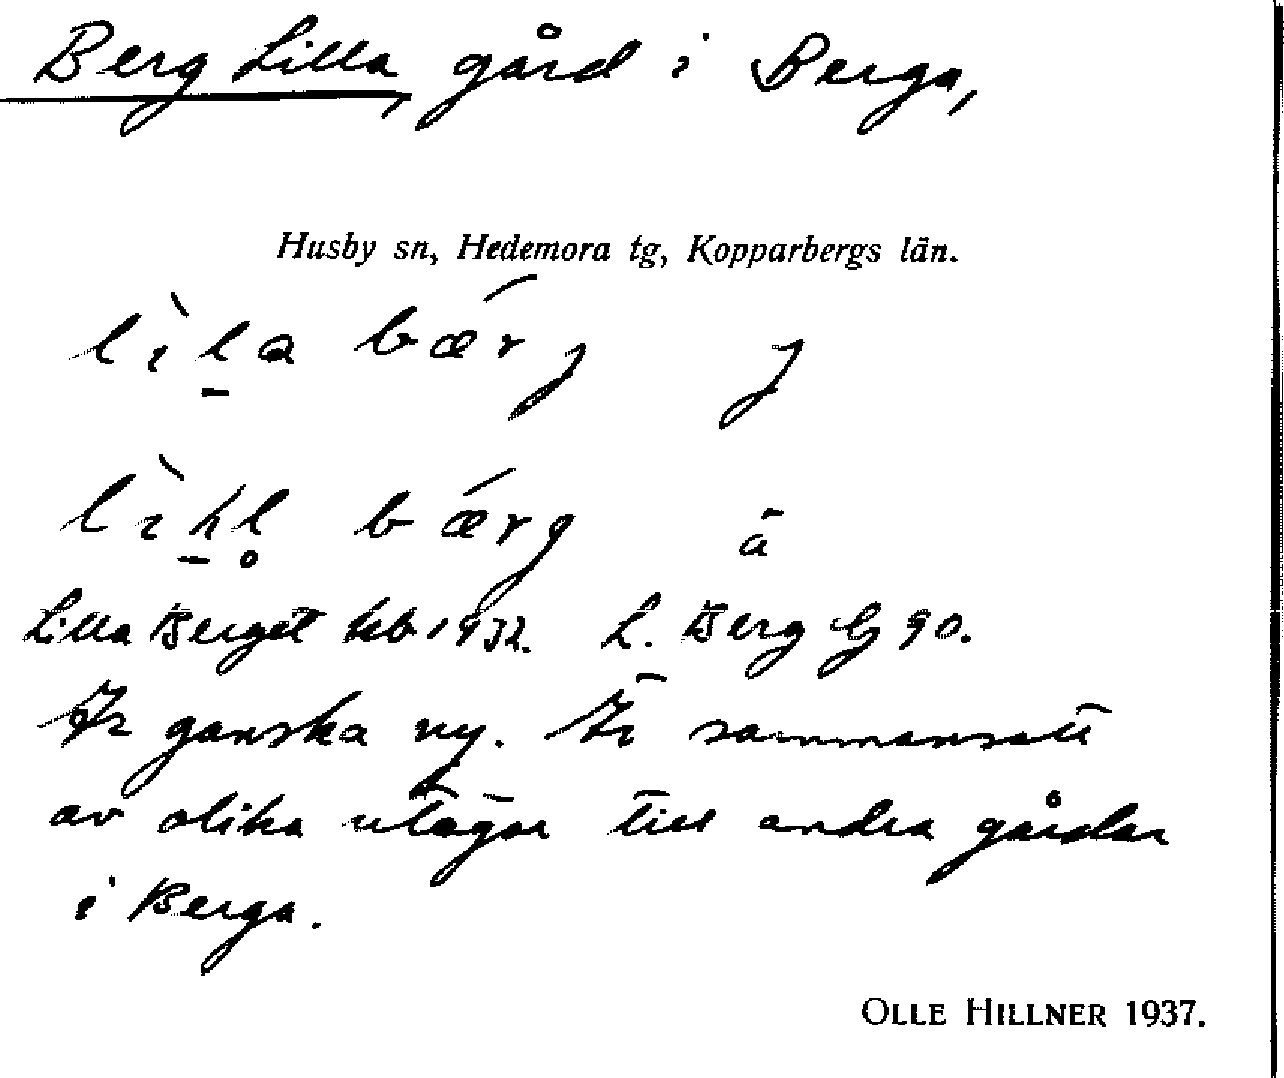 Berg Lilla, gård i Berga,
Husby sn, Hedemora tg, Kopparbergs län.
lìla bǽrj j
lìkl bǽrg ä
Lilla Berget kb 1932. L. Berg G 90.
Är ganska ny. Är sammansatt
av olika utägor till andra gårdar
i Berga.
OLLE HILLNER 1937.